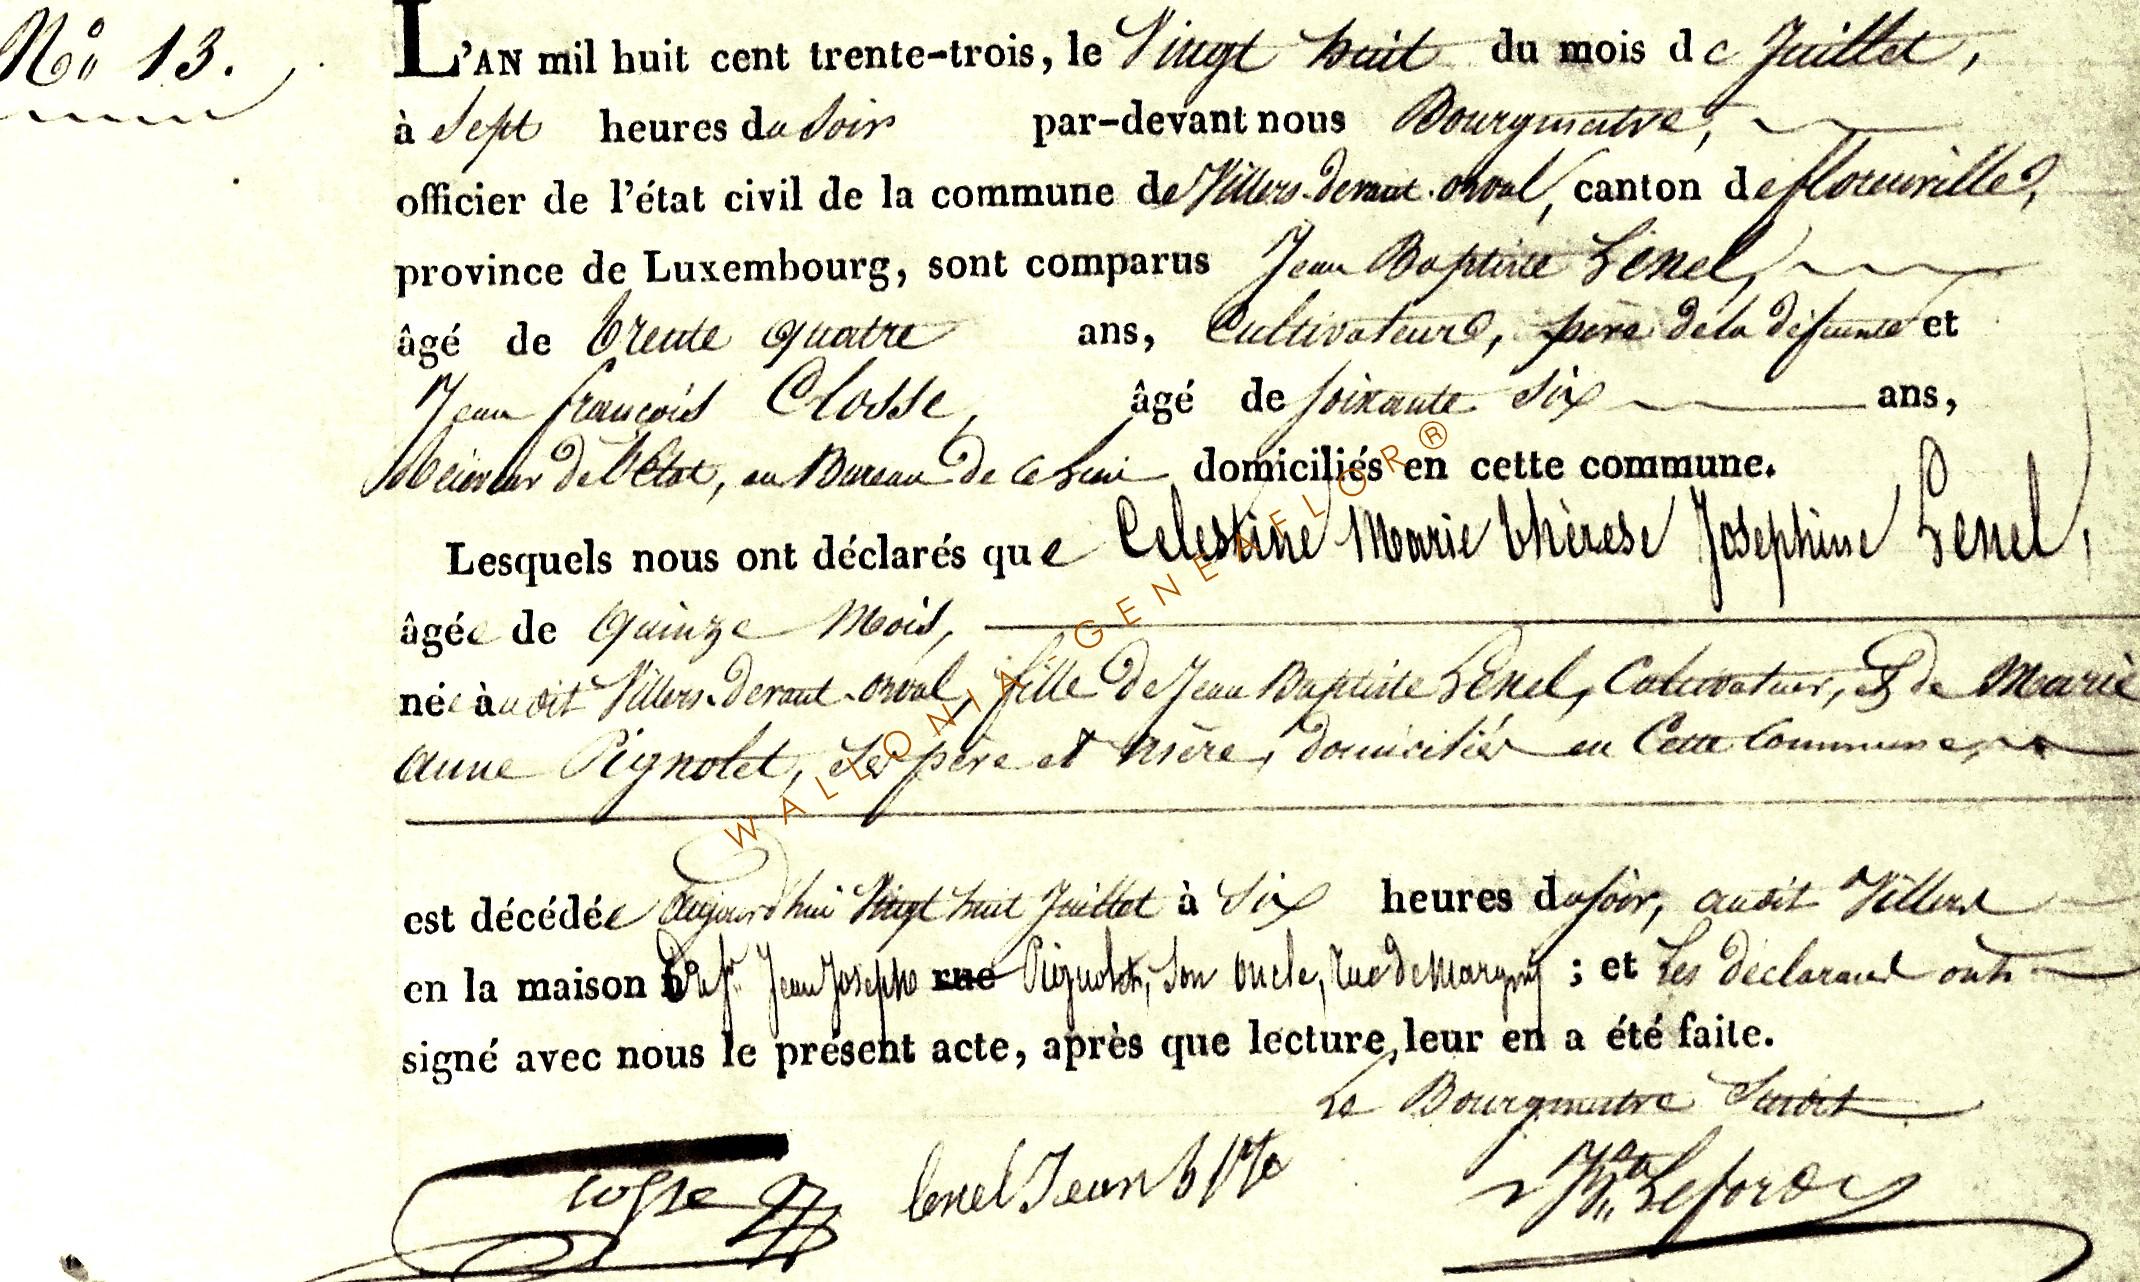 No 13.
L'AN mil huit cent trente-trois, le Vingt huit du mois de Juillet,
à Sept heures du Soir par-devant nous Bourgmatre,
officier de l'état civil de la commune de Villers-devant-orval, canton de florenville,
province de Luxembourg, sont comparus Jean Baptiste Lenel,
âgé de trente quatre ans, Cultivateur, père de la défunte et
Jean françois Closse, âgé de soixante Six ans,
de l'Etat, au Bureau de ce Lieu domiciliés en cette commune.
Lesquels nous ont déclarés que Celestine Marie thèrese Josephine Lenel,
âgée de quinze Mois,
née à udit Villers-devant-orval, fille de Jean Baptiste Lenel, Cultivateur, et de Marie
anne Pignolet, Ses père et mère, domiciliés en Cette Commune,
est décédée aujourd'hui Vingt huit Juillet à Six heures du soir, audit Villers
en la maison du sr. Jean Joseph rue Pignolet, Son oncle, rue de Margny ; et Les déclarant ont
signé avec nous le présent acte, après que lecture leur en a été faite.
Le Bourgmatre Sudit
Closse Lenel Jean bpte Lefort
WALLONIA GENEAFLOR®